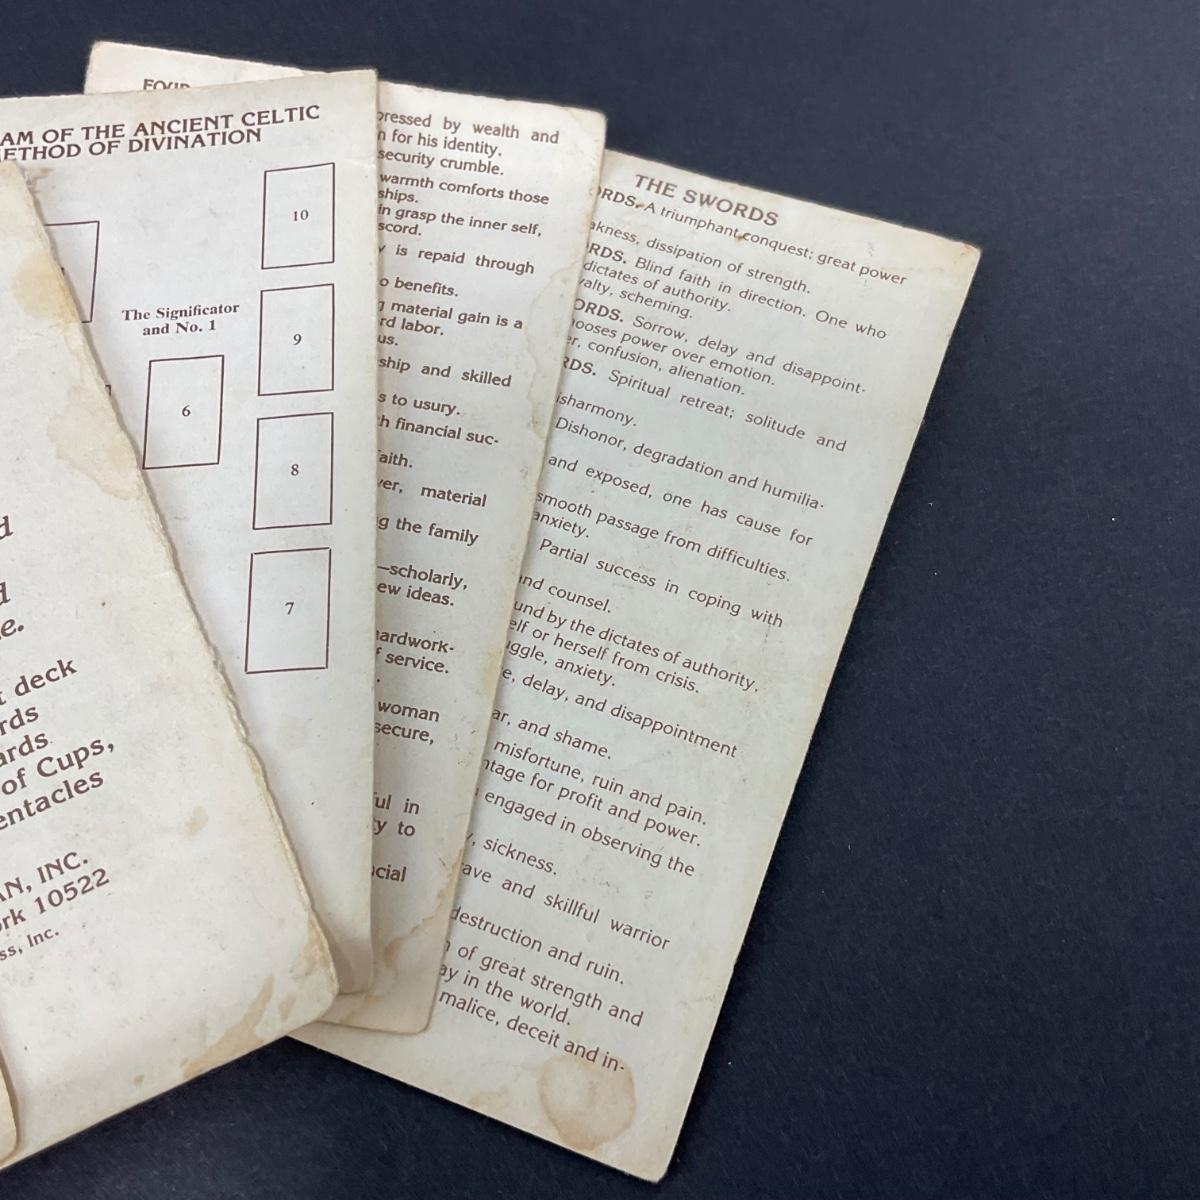 AM OF THE ANCIENT CELTIC
ETHOD OF DIVINATION
10
The Significator
and No. 1
9
6
8
7
deck
of Cups,
INC.
10522
Inc.
by wealth and
for his identity.
security crumble.
warmth comforts those
ships.
in grasp the inner self,
scord.
is repaid through
benefits.
material gain is a
labor.
us.
ship and skilled
s to usury.
financial suc-
material
the family
—scholarly,
ew ideas.
ardwork-
service.
woman
secure,
ul in
to
THE SWORDS
ORDS. A triumphant conquest; great power
akness, dissipation of strength.
RDS. Blind faith in direction. One who
dictates of authority.
yalty, scheming.
ORDS. Sorrow, delay and disappoint-
ooses power over emotion.
confusion, alienation.
RDS. Spiritual retreat; solitude and
isharmony.
Dishonor, degradation and humilia-
and exposed, one has cause for
smooth passage from difficulties.
anxiety.
Partial success in coping with
nd counsel.
und by the dictates of authority,
elf or herself from crisis.
uggle, anxiety.
e, delay, and disappointment
ar, and shame.
misfortune, ruin and pain.
ntage for profit and power.
engaged in observing the
sickness.
ave and skillful warrior
destruction and ruin.
of great strength and
ay in the world.
malice, deceit and in-